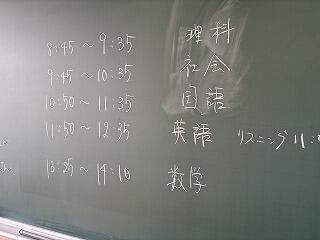 8:45 〜 9:35 理科
9:45 〜 10:35 社会
10:50 〜 11:35 国語
11:50 〜 12:35 英語 リスニング 11:
13:25 〜 14:10 数学